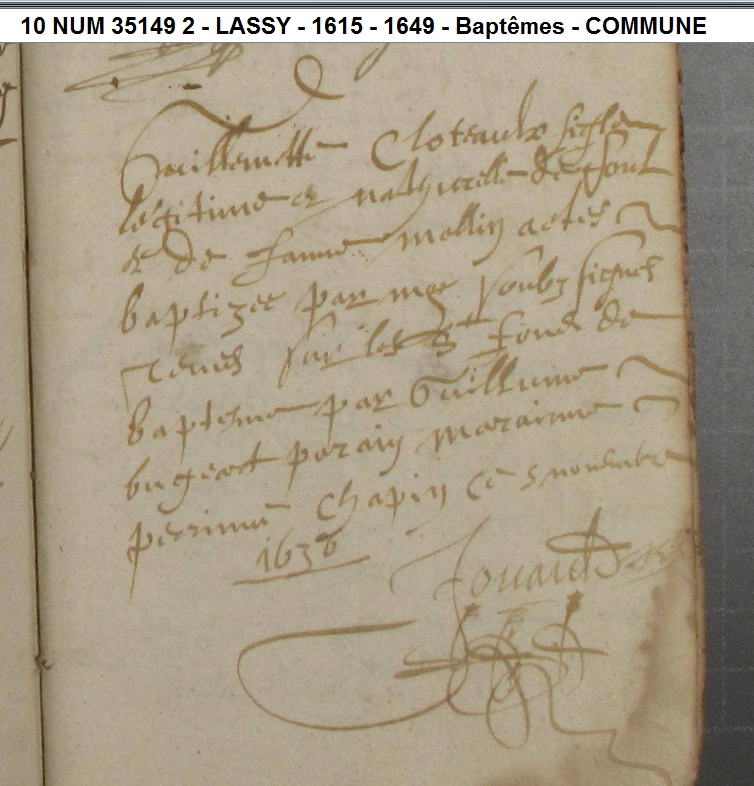 10 NUM 35149 2 - LASSY - 1615 - 1649 - Baptêmes - COMMUNE
Guillemette Cloteaulx fille
legitime et nathurelle de
et de Janne mellin a estée
baptizee par moy soubz signé
tenue sur les Sts fons de
baptesme par Guillaume
bugeart parain maraine
perrinne Chapin ce 5 novembre
1636